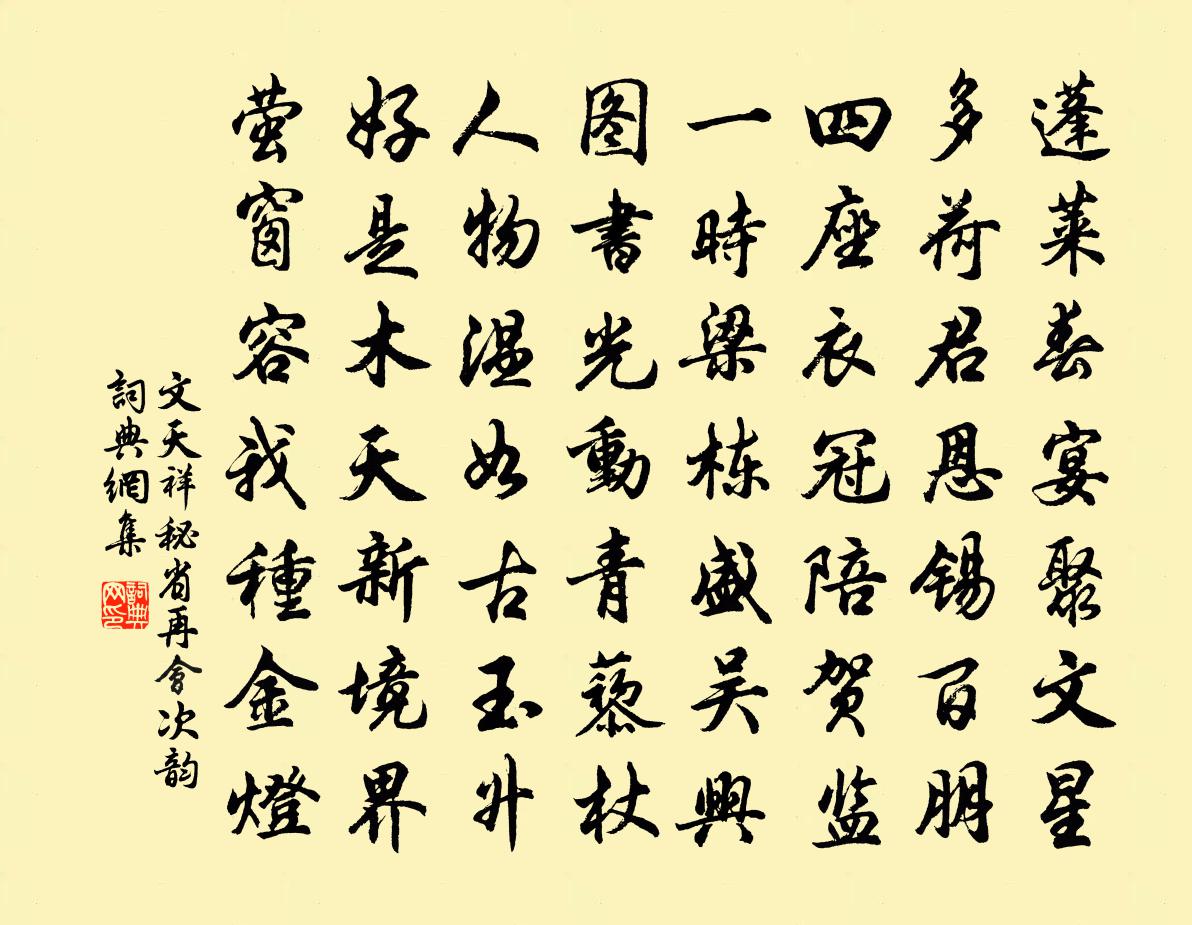 蓬莱春宴聚文星
多荷君恩锡百朋
四座衣冠陪贺监
一時梁栋盛吴興
图書光動青藜杖
人物温如古玉升
好是木天新境界
萤窗容我種金燈
文天祥秘省再會次韵
詞典網集
詞典网印